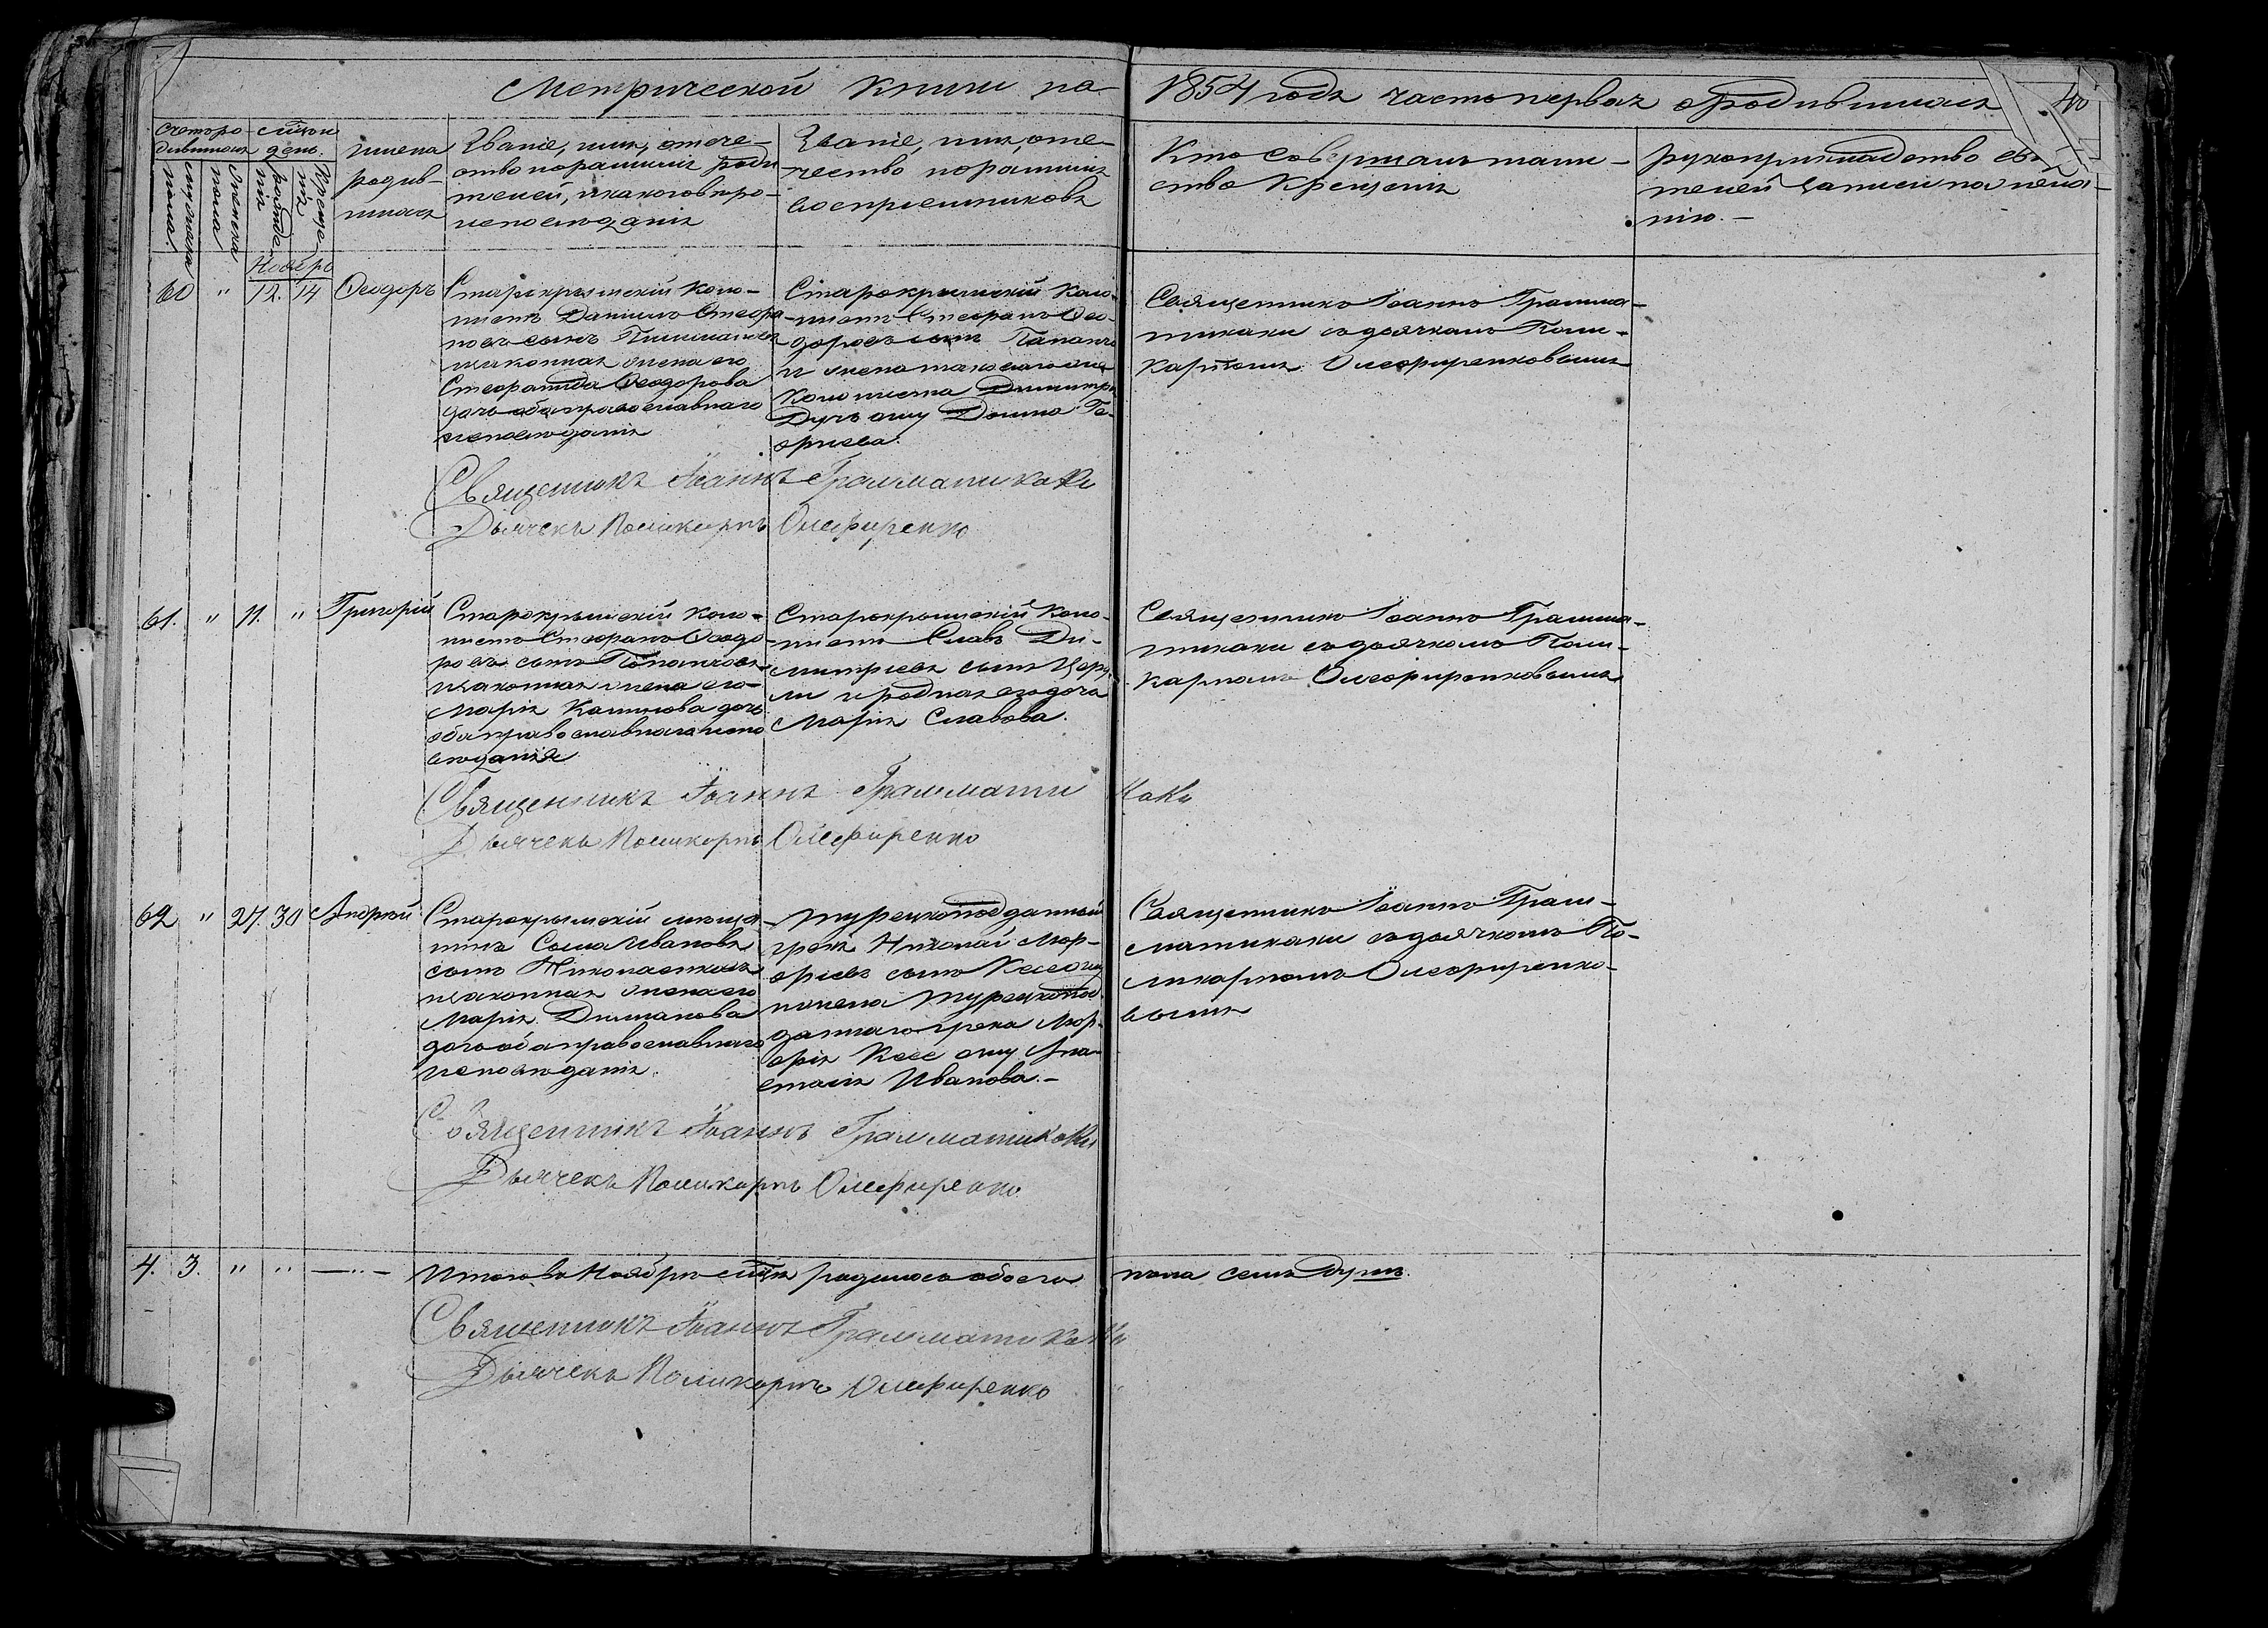 Метрической Книги на 1854 годъ часть первая о родившихся
40
Счетъ родившихся
мѣсяцъ и день.
мужеска пола.
женска пола
рожденія
Крещенія
имена родившихся
Званіе, имя, отече-
ство и фамилія роди
телей, и какого вѣро-
исповѣданія
Званіе, имя, оте-
чество и фамилія
воспріемниковъ
Кто совершалъ таин-
ство Крещенія
рукоприкладство сви
телей записи по жела-
нію. —
Ноябрь
60 " 12. 14 Ѳеодоръ
Старокрымскій коло-
нистъ Даніилъ Стефа
новъ сынъ
и законная жена его
Ѳеодорова
дочь оба православнаго
исповѣданія
Старокрымскій Коло-
нистъ Стефанъ Ѳео-
доровъ сынъ
и жена таковаго же
Колониста Димитрія
Домна Ге-
оргіева.
Священникъ Іоаннъ Грамма-
тикаки съ дьячкомъ Поли-
карпомъ Олефиренковымъ
Священникъ Іоаннъ Грамматикаки
Дьячекъ Поликарпъ Олефиренко
61. " 11. " Григорій
Старокрымскій коло-
нистъ Стефанъ Ѳеодо
ровъ сынъ
и законная жена его
Марія Калинова дочь
оба православнаго испо
вѣданія
Старокрымскій Коло-
нистъ Славъ Ди-
митріевъ сынъ
и родная его дочь
Марія Славова.
Священникъ Іоаннъ Грамма-
тикаки съ дьячкомъ Поли-
карпомъ Олефиренковымъ
Священникъ Іоаннъ Грамматикаки
Дьячекъ Поликарпъ Олефиренко
62 " 27. 30 Андрей
Старокрымскій мѣща
нинъ Сома Ивановъ
сынъ
и законная жена его
Марія Диманова
дочь оба православнаго
исповѣданія.
Турецкоподданный
грекъ Николай
сынъ
и жена Турецкопод
даннаго грека
Ана-
стасія Иванова. —
Священникъ Іоаннъ Грам-
матикаки съ дьячкомъ По-
ликарпомъ Олефиренко-
вымъ
Священникъ Іоаннъ Грамматикаки
Дьячекъ Поликарпъ Олефиренко
4. 3. " "
Итого въ Ноябрѣ мѣсяцѣ родилось обоего пола семь душъ.
Священникъ Іоаннъ Грамматикаки
Дьячекъ Поликарпъ Олефиренко